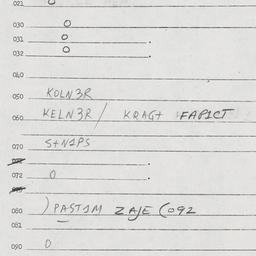 021 O
030 O
031 O .
032 O .
040
050 KOLN3R
060 KELN3R / KRAGt FAP1CT
070 S+N1PS
.
072 O .
080 ) PAST1M ZAJE (092
081
090 O